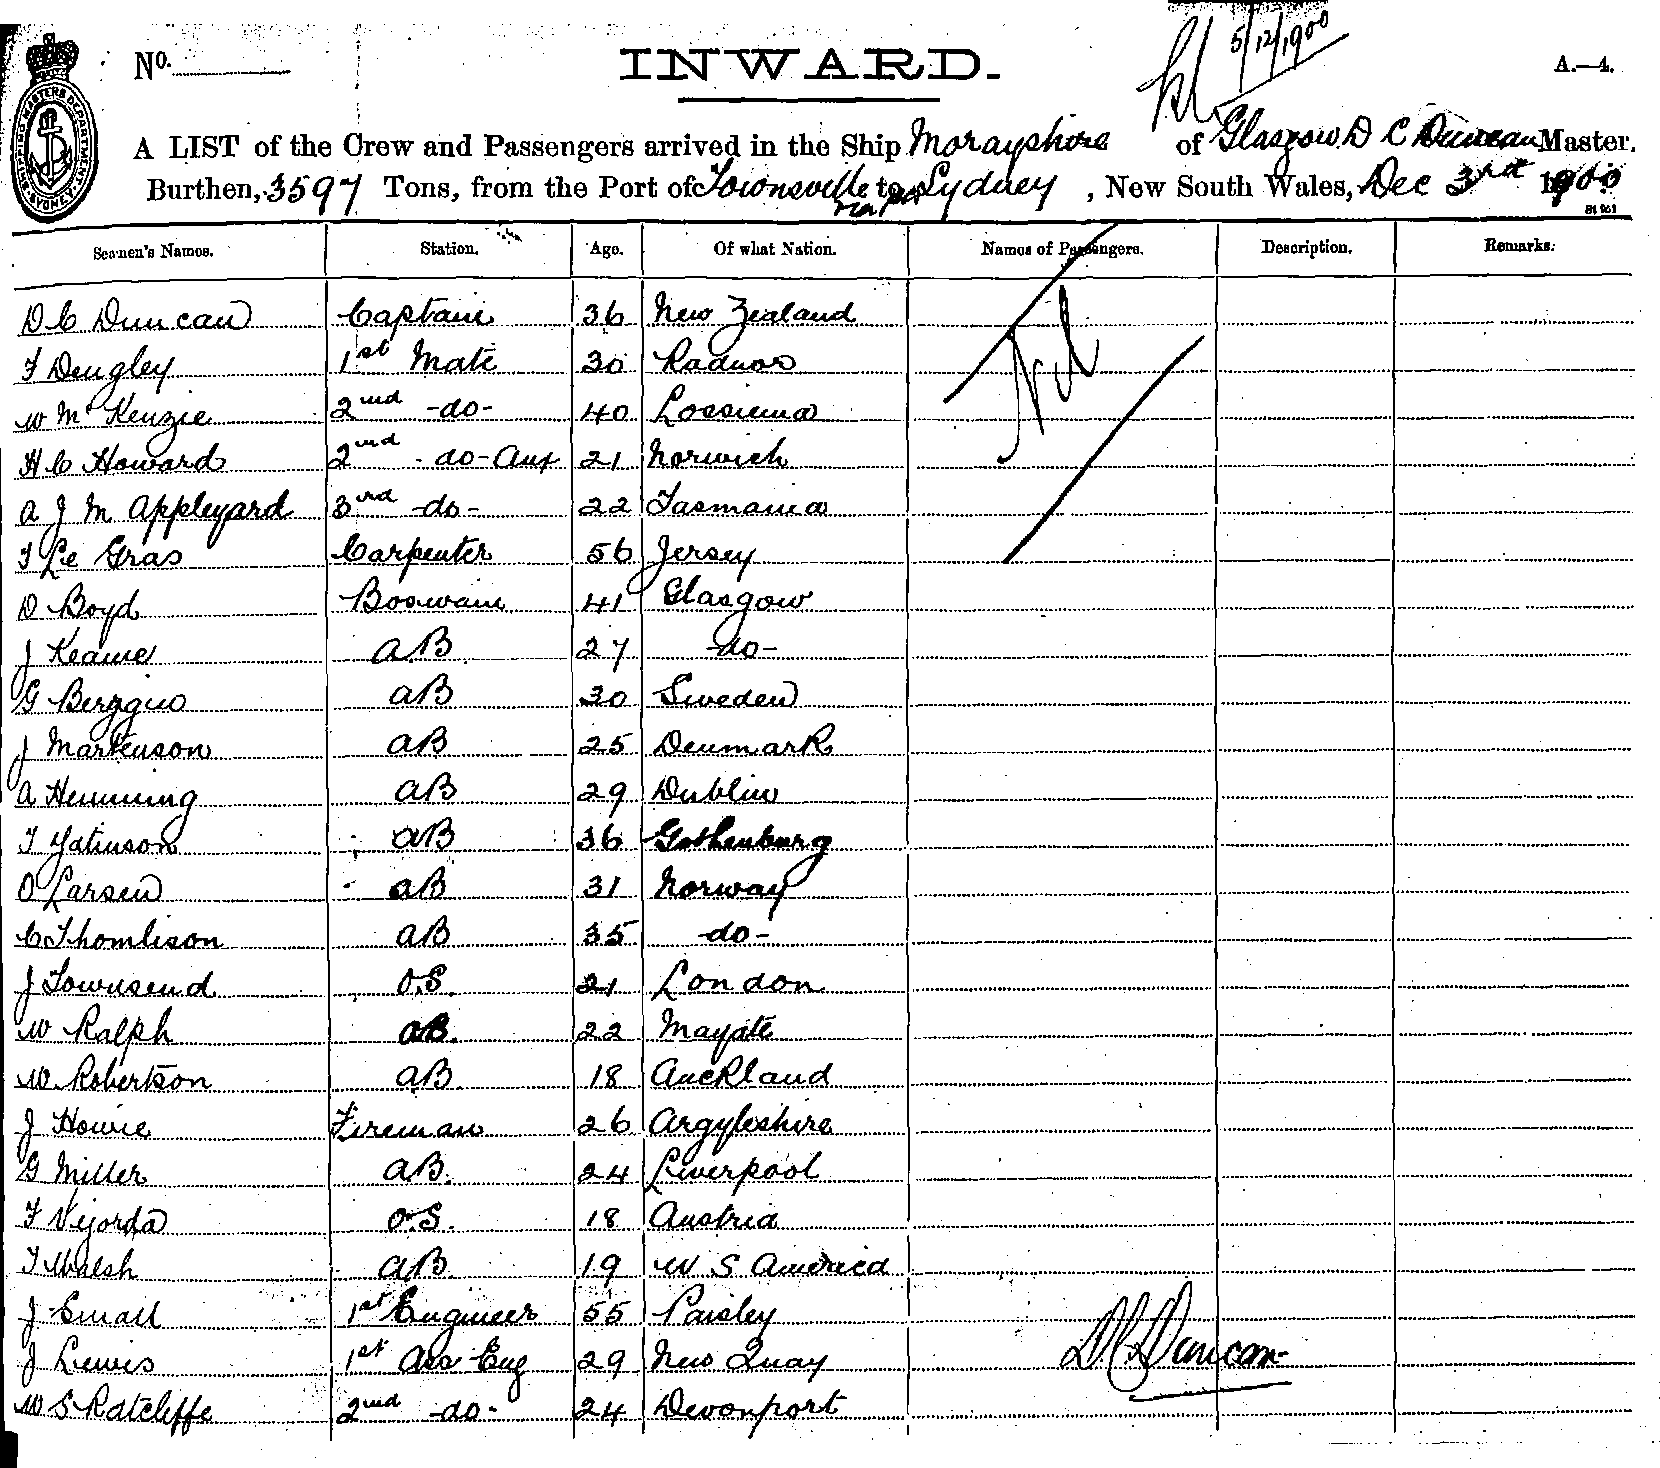 5/12/1900
No. INWARD. A.—4.
A LIST of the Crew and Passengers arrived in the Ship Morayshire of Glasgow D C Duncan Master,
Burthen, 3597 Tons, from the Port of Townsville to Sydney, New South Wales, Dec 3rd 1900
SHIPPING MASTERS DEPARTMENT SYDNEY
Seamen's Names. Station. Age. Of what Nation. Names of Passengers. Description. Remarks.
D C Duncan Captain 36 New Zealand
F Dengley 1st Mate 30 Radnor
W McKenzie 2nd -do- 40 Lossiema
H C Howard 2nd -do- Aux 21 Norwich
A J M Appleyard 3rd -do- 22 Tasmania
F Le Gras Carpenter 56 Jersey
D Boyd Boswain 41 Glasgow
J Keane AB 27 -do-
G AB 30 Sweden
J Martenson AB 25 Denmark
A Hemming AB 29 Dublin
AB 36 Gothenburg
O Larsen AB 31 Norway
C Thomlison AB 35 -do-
J Townsend O.S. 21 London
W Ralph AB. 22 
W Robertson AB 18 Auckland
J Howie Fireman 26 Argyleshire
G Miller AB. 24 Liverpool
F Vijorda O.S. 18 Austria
T Walsh AB 19 W S America
J Small 1st Engineer 55 Paisley
J Lewis 1st Ass Eng 29 New Quay
W S Ratcliffe 2nd -do- 24 Devonport
Nil
D C Duncan